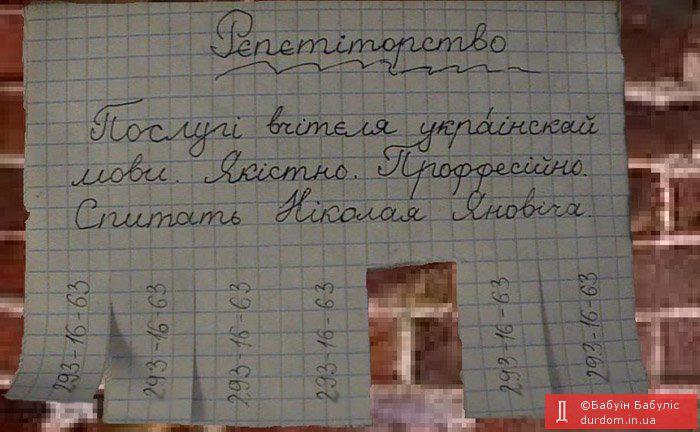 Рєпєтіторство
Послугі вчітєля укра́інскай
мови. Якістно. Проффесійно.
Спитать Ніколая Яновіча.
293-16-63
293-16-63
293-16-63
293-16-63
293-16-63
293-16-63
Д
©Бабуїн Бабуліс
durdom.in.ua